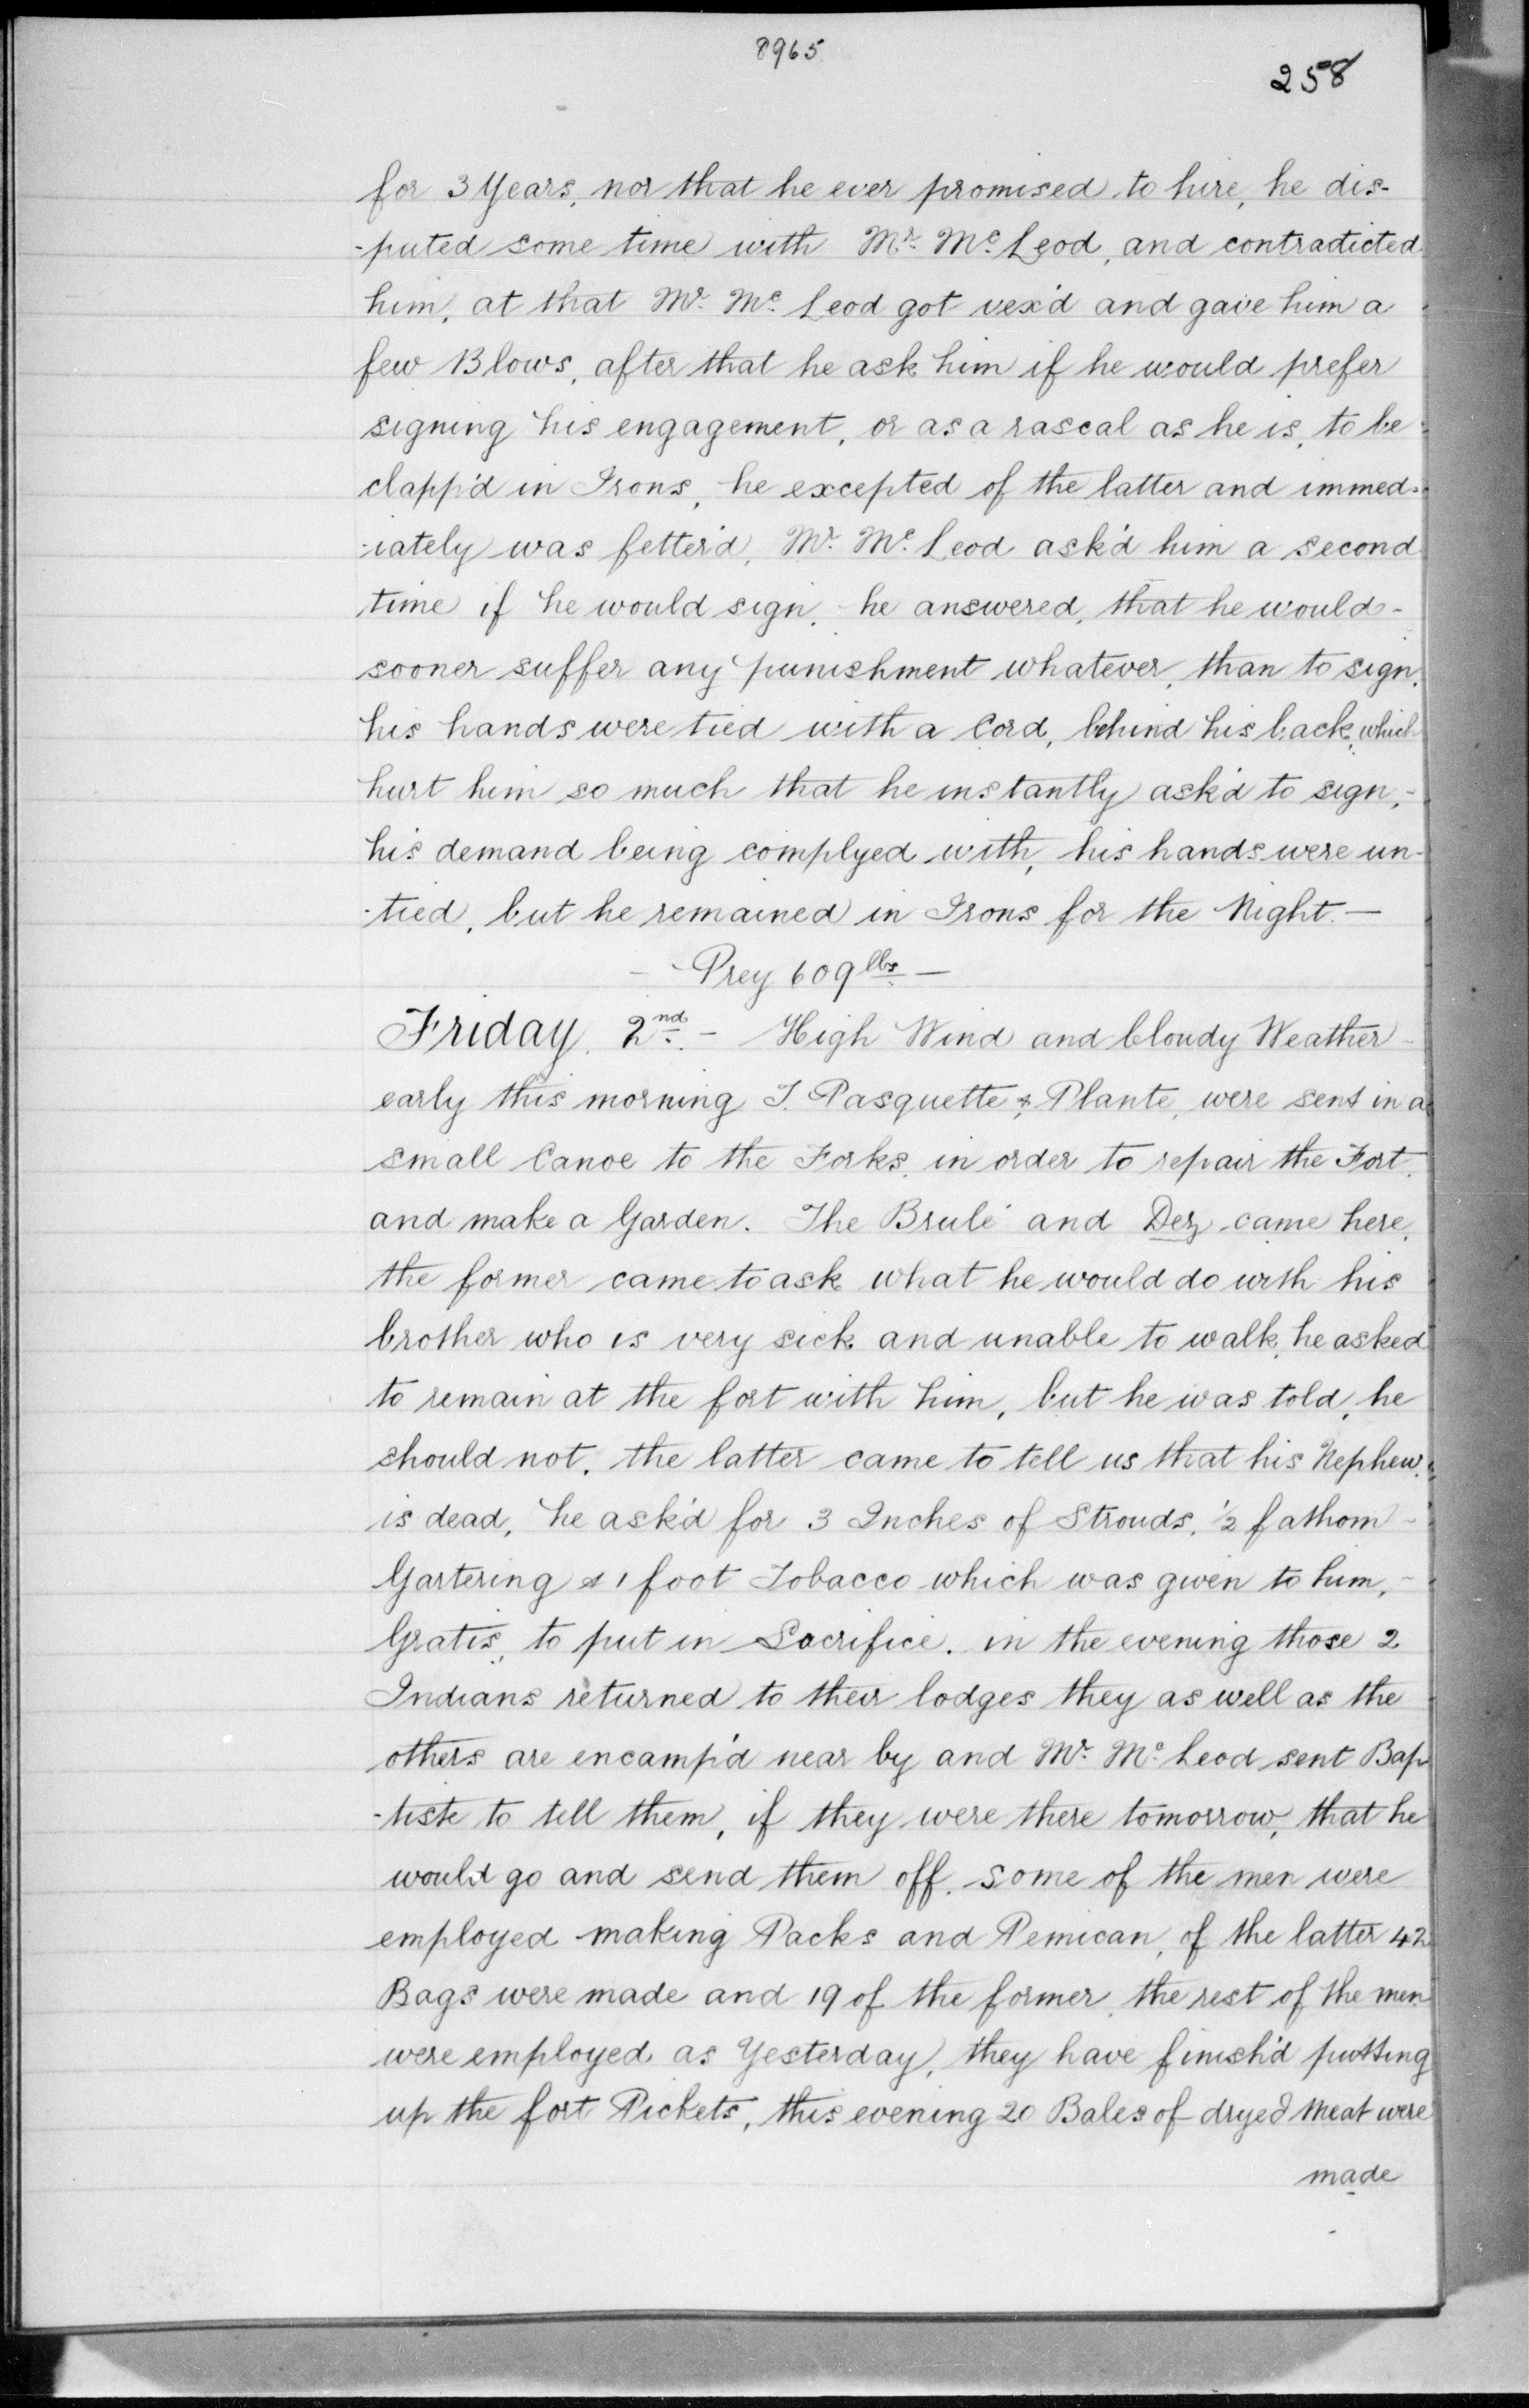 8965
258
for 3 Years, nor that he ever promised to hire, he dis-
-puted some time with Mr. Mc. Leod, and contradicted
him, at that Mr. Mc. Leod got vex'd and gave him a
few Blows, after that he ask him if he would prefer
signing his engagement, or as a rascal as he is, to be
clapp'd in Irons, he excepted of the latter and immed-
-iately was fetter'd, Mr. Mc. Leod ask'd him a second
time if he would sign, he answered, that he would-
sooner suffer any punishment whatever, than to sign,
his hands were tied with a Cord, behind his back, which
hurt him so much that he instantly ask'd to sign,-
his demand being complyed with, his hands were un-
-tied, but he remained in Irons for the Night.—
- Prey 609 lbs —
Friday. 2nd. - High Wind and Cloudy Weather -
early this morning J. Pasquette & Plante, were sent in a
small Canoe to the Forks, in order to repair the Fort,
and make a Garden. The Brulé and Dez came here,
the former came to ask what he would do with his
brother who is very sick and unable to walk, he asked
to remain at the fort with him, but he was told, he
should not, the latter came to tell us that his Nephew
is dead, he ask'd for 3 Inches of Strouds, ½ fathom -
Gartering & 1 foot Tobacco which was given to him,-
Gratis, to put in Sacrifice. in the evening those 2
Indians returned to their lodges they as well as the
others are encamp'd near by and Mr. Mc. Leod sent Bap
-tiste to tell them, if they were there tomorrow, that he
would go and send them off. some of the men were
employed making Packs and Pemican, of the latter 42
Bags were made and 19 of the former, the rest of the men
were employed as Yesterday, they have finish'd putting
up the fort Pickets, this evening 20 Bales of dryed Meat were
made